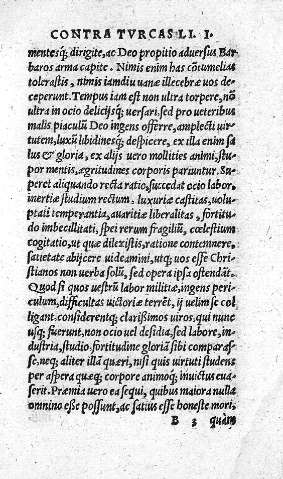 CONTRA TVRCAS LI. I.
mentesq́; dirigite, ac Deo propitio aduersus Bar-
baros arma capite. Nimis enim has cõtumelias
tolerastis, nimis iamdiu uanæ illecebræ uos de-
ceperunt. Tempus iam est non ultra torpere, nõ
ultra in ocio delicijsq́; uersari, sed pro ueteribus
malis piaculũ Deo ingens offerre, amplecti uir-
tutem, luxũ libidinesq́; despicere, ex illa enim sa
lus & gloria, ex alijs uero mollities animi, stu-
por mentis, ægritudines corporis pariuntur. Su-
peret aliquando recta ratio, succedat ocio labor,
inertiæ studium rectum, luxuriæ castitas, uolu-
ptati temperantia, auaritiæ liberalitas, fortitu-
do imbecillitati, spei rerum fragiliũ, cœlestium
cogitatio, ut quæ dilexistis, ratione contemnere,
satietate abijcere uideamini, utq́; uos esse Chri-
stianos non uerba solũ, sed opera ipsa ostendãt.
Quod si quos uestrũ labor militiæ, ingens peri-
culum, difficultas uictoriæ terrẽt, ij uelim se col
ligant considerentq́; clarissimos uiros, qui nunc
usq́; fuerunt, non ocio uel desidia, sed labore, in-
dustria, studio, fortitudine gloriã sibi comparas-
se, neq́; aliter illã quæri, nisi quis uirtuti studens
per aspera quæq́; corpore animoq́; inuictus eua-
serit. Præmia uero ea sequi, quibus maiora nulla
omnino esse possunt, ac satius esse honeste mori,
B 3 quàm